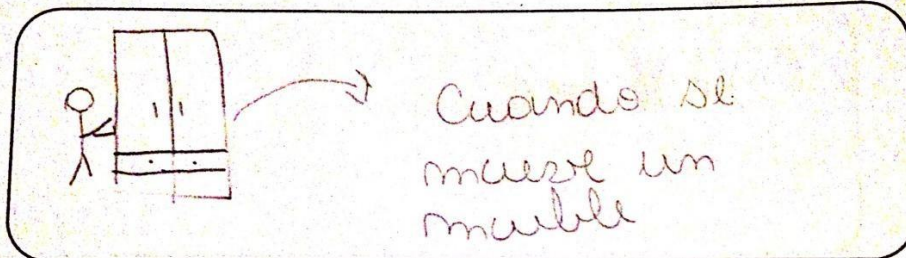 Cuando se
mueve un
mueble